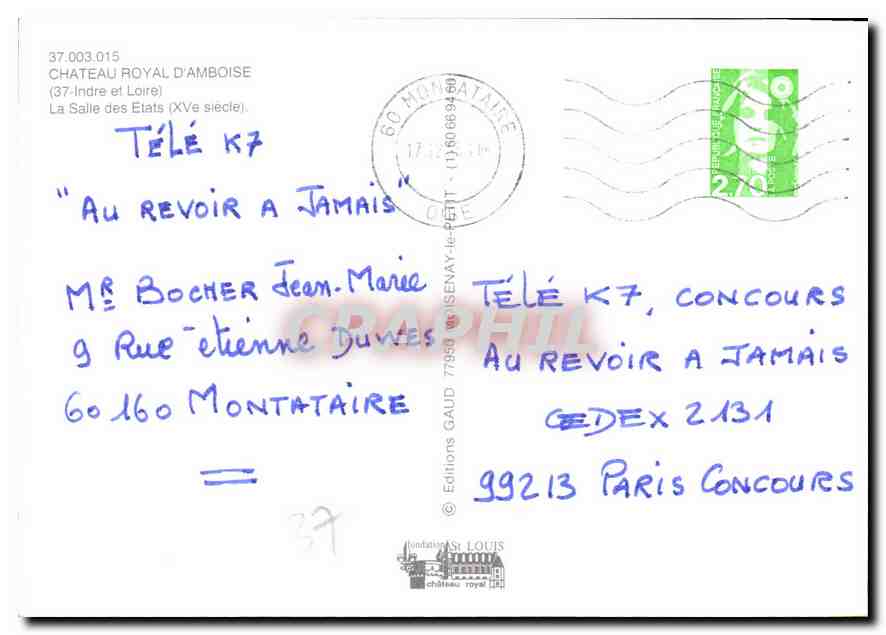 37.003.015
CHATEAU ROYAL D'AMBOISE
(37-Indre et Loire)
La Salle des Etats (XVe siècle).
TÉLÉ K7
"AU REVOIR A JAMAIS"
MR BOCHER Jean-Marie
9 Rue étienne DUWES
60160 MONTATAIRE
60 MONTATAIRE
OISE
RÉPUBLIQUE FRANÇAISE
2,70
LA POSTE
TÉLÉ K7, CONCOURS
AU REVOIR A JAMAIS
CEDEX 2131
99213 PARIS CONCOURS
© Editions GAUD 77950 MOISENAY-le-PETIT - (1) 60 66 94 60
CPAPHIL
37
fondation St LOUIS
château royal